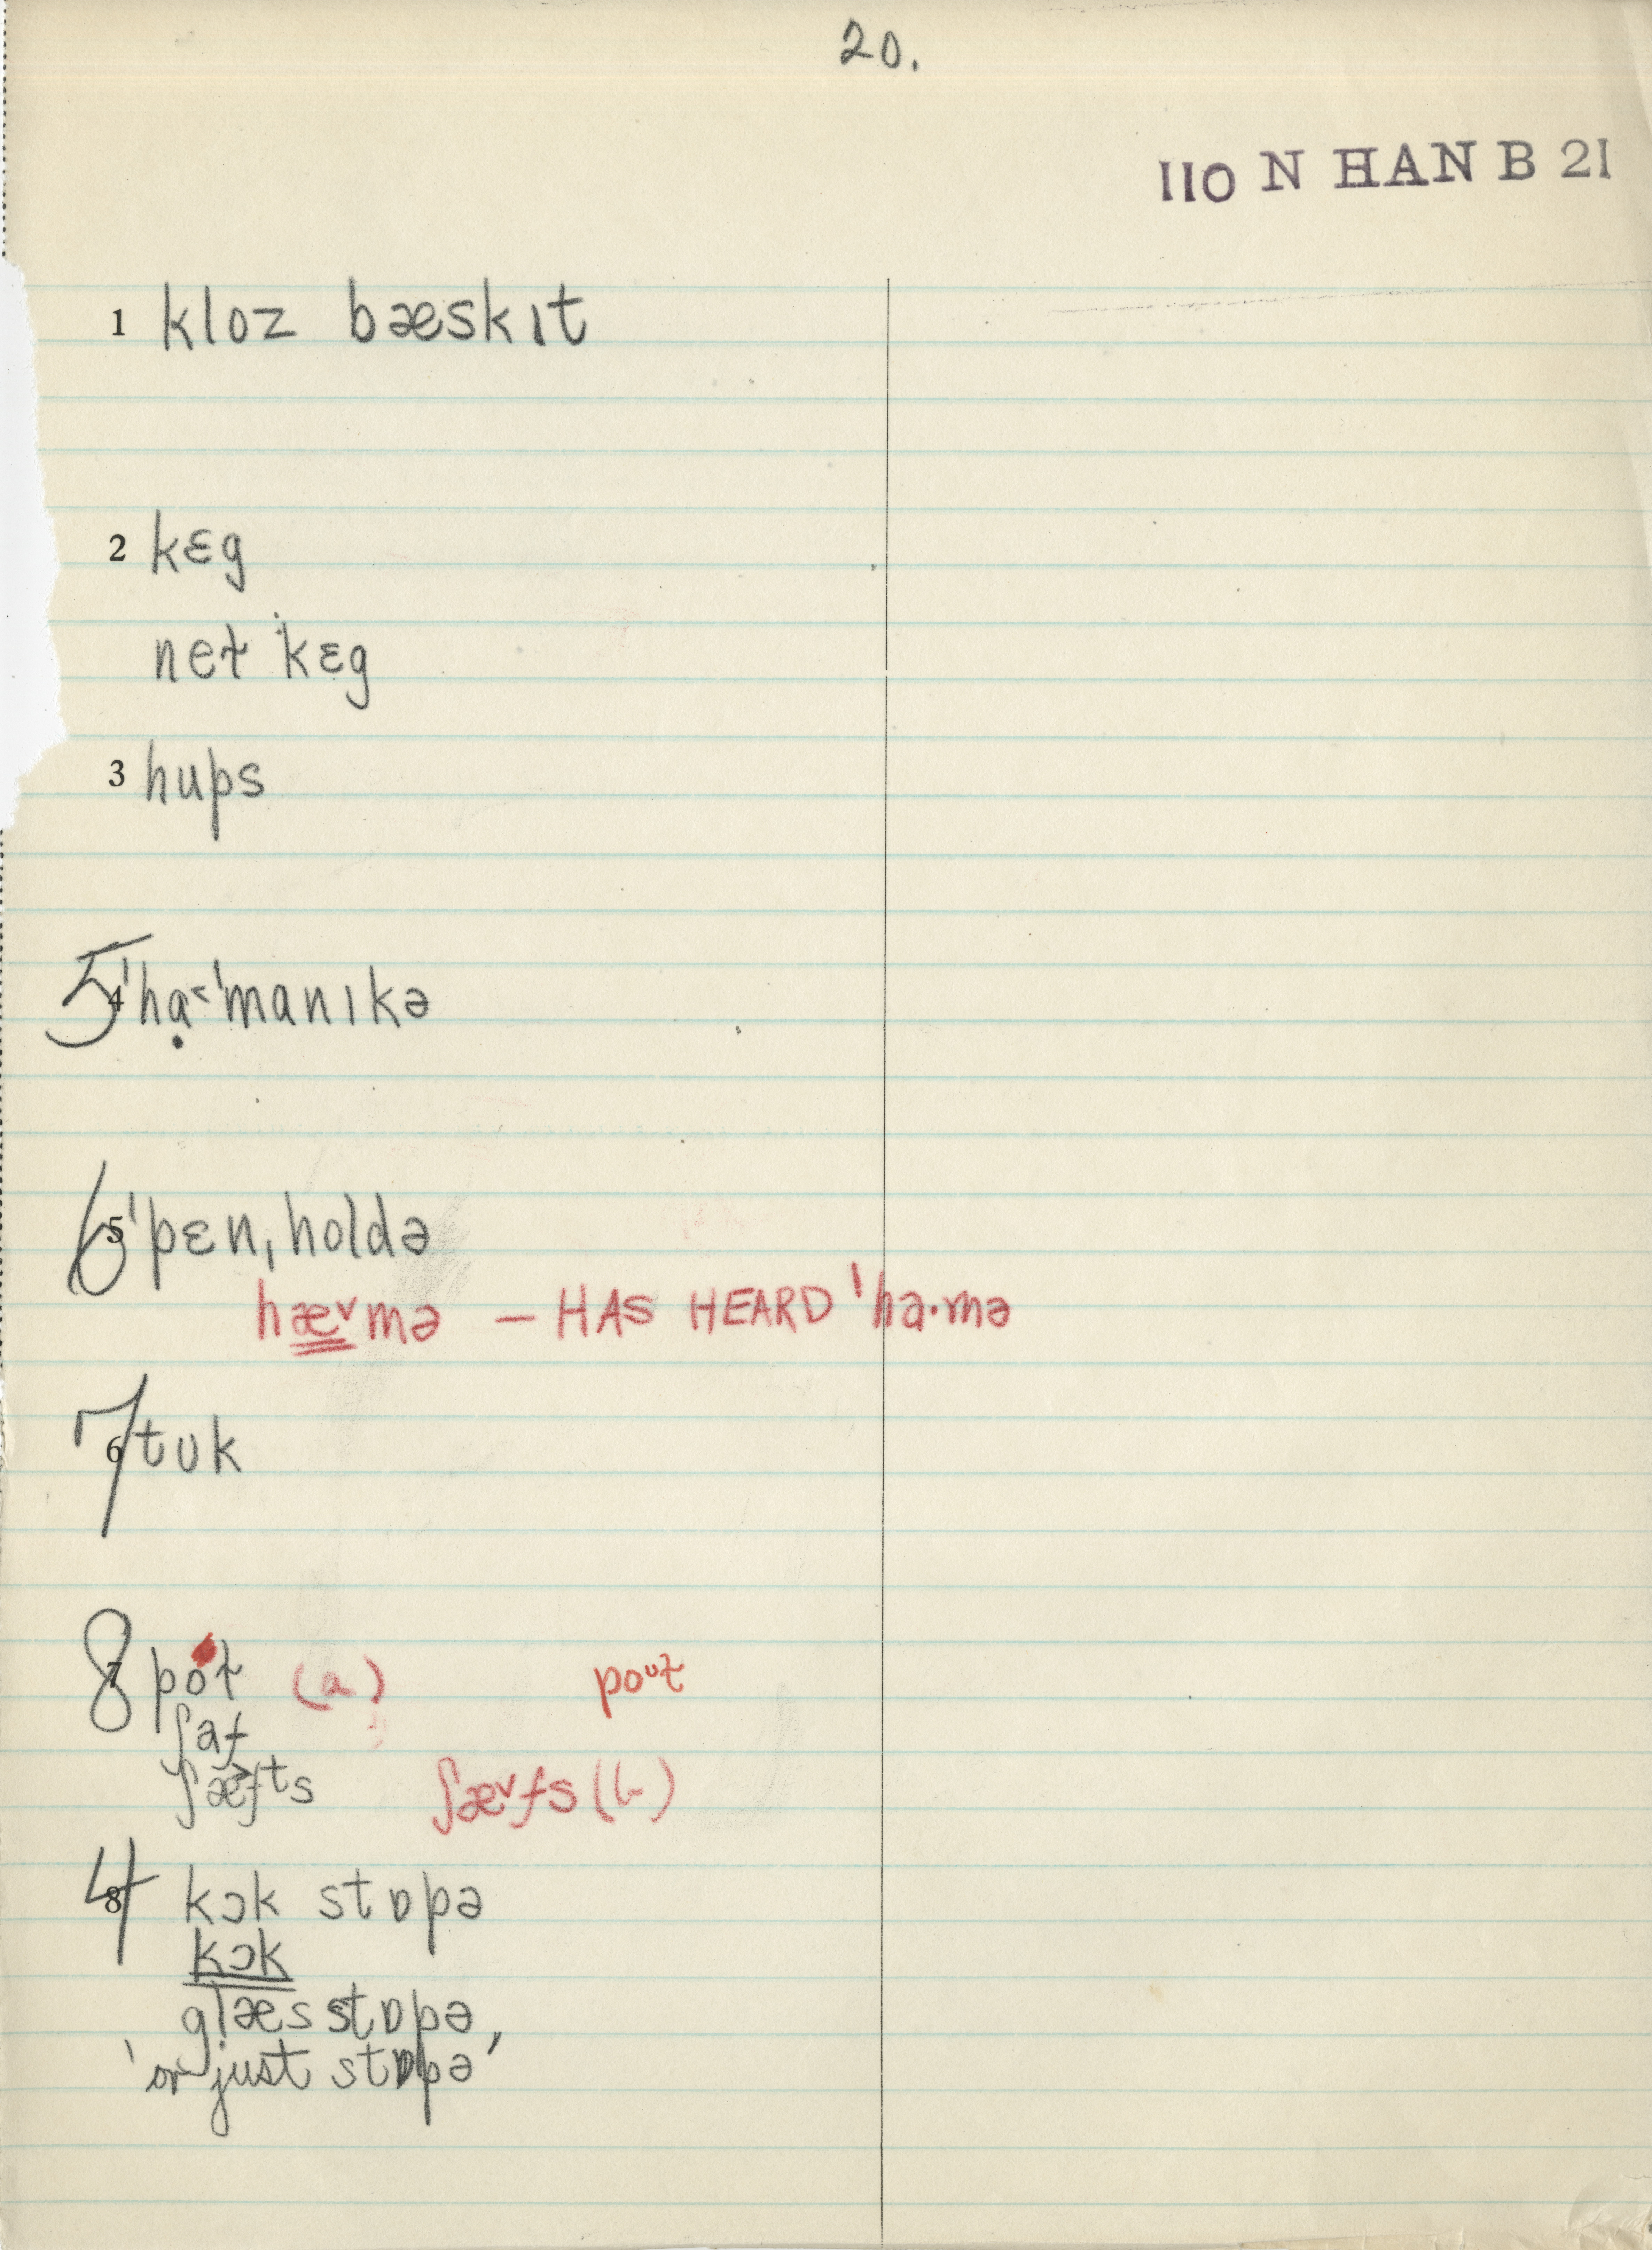 20.
110 N HAN B 21
1 kloz bæskɪt
2 kɛg
net kɛg
3 hups
5 4 ˈhɑ̣˂ˈmanɪkə
6 5 ˈpɛnˌholdə
hæ˅mə — HAS HEARD ˈha·mə
7 6 tʊk
8 7 pot (a) poᶷt
ʃaf
ʃæ˃fᵗs ʃæ˅fs (b)
4 8 kɔk stɒpə
kɔk
glæs stɒpə,
'or just stɒpə'